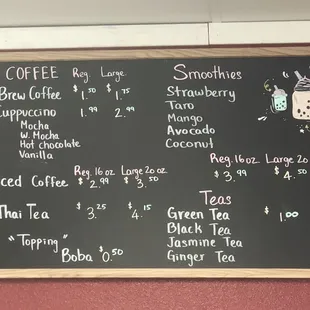 COFFEE Reg. Large
Brew Coffee $1.50 $1.75
Cappuccino 1.99 2.99
Mocha
W. Mocha
Hot chocolate
Vanilla
Reg. 16oz Large 20oz
Iced Coffee $2.99 $3.50
Thai Tea $3.25 $4.15
"Topping"
Boba $0.50
Smoothies
Strawberry
Taro
Mango
Avocado
Coconut
Reg. 16oz Large 20
$3.99 $4.50
Teas
Green Tea $1.00
Black Tea
Jasmine Tea
Ginger Tea